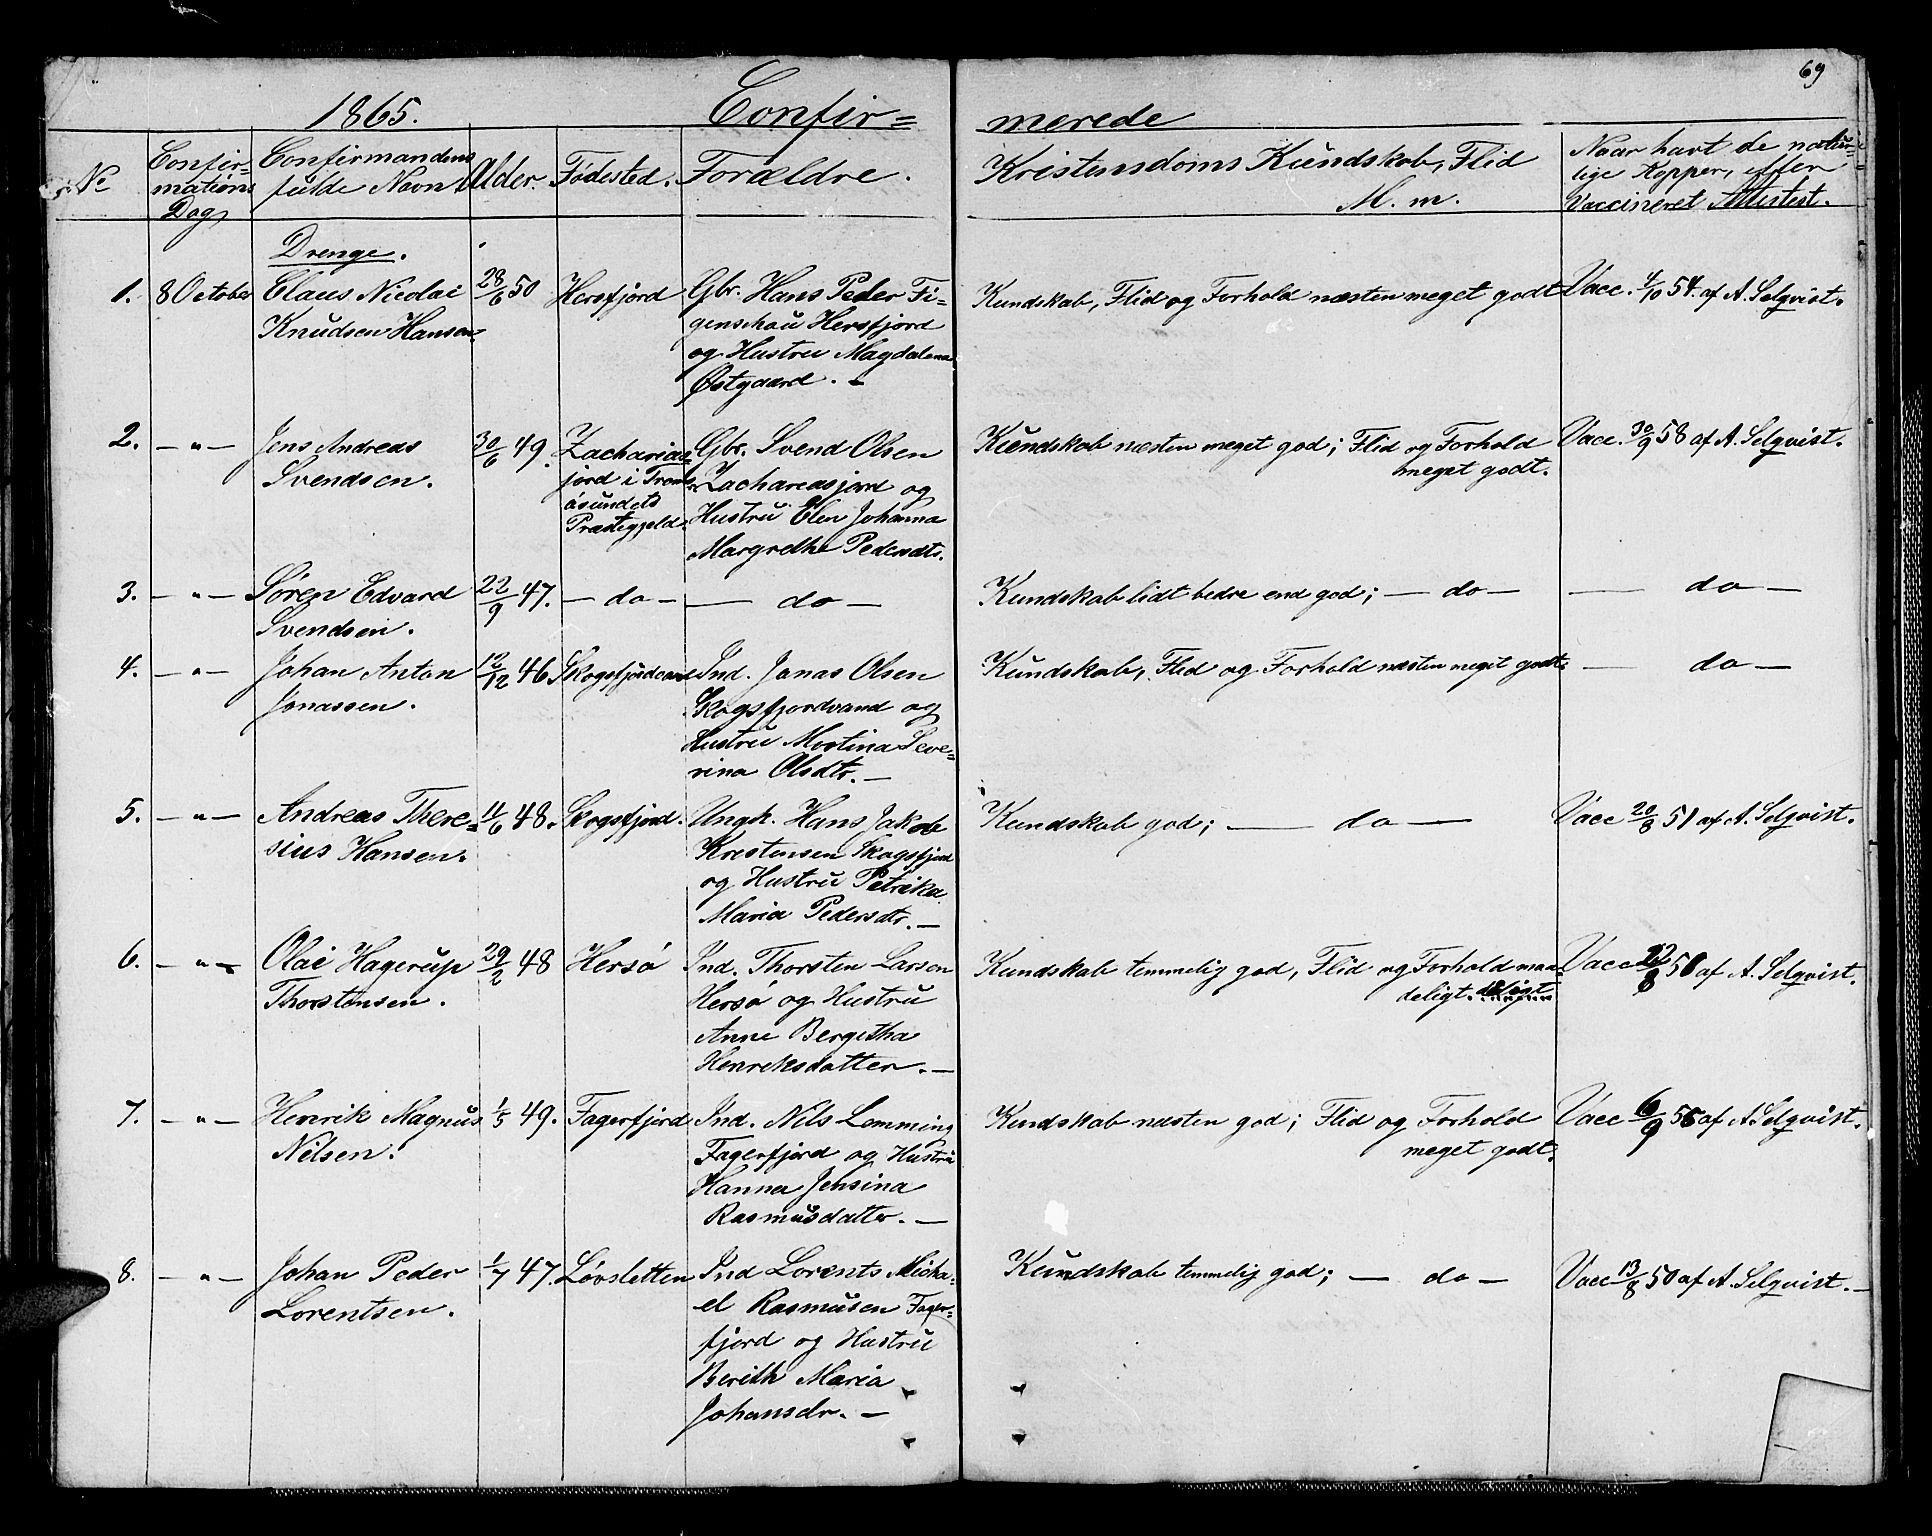 69
1865. Confir= merede
No
Confir=
mations
Dag
Confirmandens
fulde Navn
Alder.
Fødested.
Forældre.
Kristendoms Kundskab, Flid
M. m.
Naar havt de natur=
lige Kopper, efter
Vaccineret Attestest.
Drenge.
1. 8 October
Claus Nicolai
Knudsen Hansen.
28/6 50
Hersfjord
Gbr. Hans Peder Fi=
genschou Hersfjord
og Hustru Magdalena
Østgaard. –
Kundskab, Flid og Forhold næsten meget godt
Vacc. 4/10 54. af A. Selqvist.
2. – " –
Jens Andreas
Svendsen.
30/6 49.
Zacharias
jord i Trom
øsundets
Præstegjeld.
Gbr. Svend Olsen
Zachariasjord og
Hustru Elen Johanna
Margrethe Pedersdtr.
Kundskab næsten meget god; Flid og Forhold
meget godt.
Vacc. 30/9 58 af A. Selqvist.
3. – " –
Søren Edvard
Svendsen.
22/9 47.
– do –
– do –
Kundskab lidt bedre end god; – do –
– do –
4. – " –
Johan Anton
Jonassen.
12/12 46
Skogsfjordvand
Ind. Jonas Olsen
Skogsfjordvand og
Hustru Martina Seve=
rina Olsdtr. –
Kundskab, Flid og Forhold næsten meget godt.
– do –
5. – " –
Andreas There=
sius Hansen.
11/6 48.
Skogsfjord.
Ungk. Hans Jakob
Kristensen Skogsfjord
og Hustru Petrika
Maria Pedersdtr. –
Kundskab god; – do –
Vacc 20/8 51 af A. Selqvist.
6. – " –
Olai Hagerup
Thorstensen.
29/2 48
Hersø
Ind. Thorsten Larsen
Hersø og Hustru
Anne Bergitha
Henriksdatter. –
Kundskab temmelig god, Flid og Forhold maa=
deligt.
Vacc 22/8 50 af A. Selqvist.
7. – " –
Henrik Magnus
Nilsen.
1/5 49.
Fagerfjord
Ind. Nils Lemming
Fagerfjord og Hustru
Hanna Jensina
Rasmusdatter. –
Kundskab næsten god; Flid og Forhold
meget godt.
Vacc 6/9 56 af A. Selqvist.
8. – " –
Johan Peder
Lorentsen.
1/7 47.
Løvsletten
Ind Lorents Micha=
el Rasmusen Fager=
fjord og Hustru
Berith Maria
Johansdr. –
Kundskab temmelig god; – do –
Vacc 13/8 50 af A. Selqvist. –